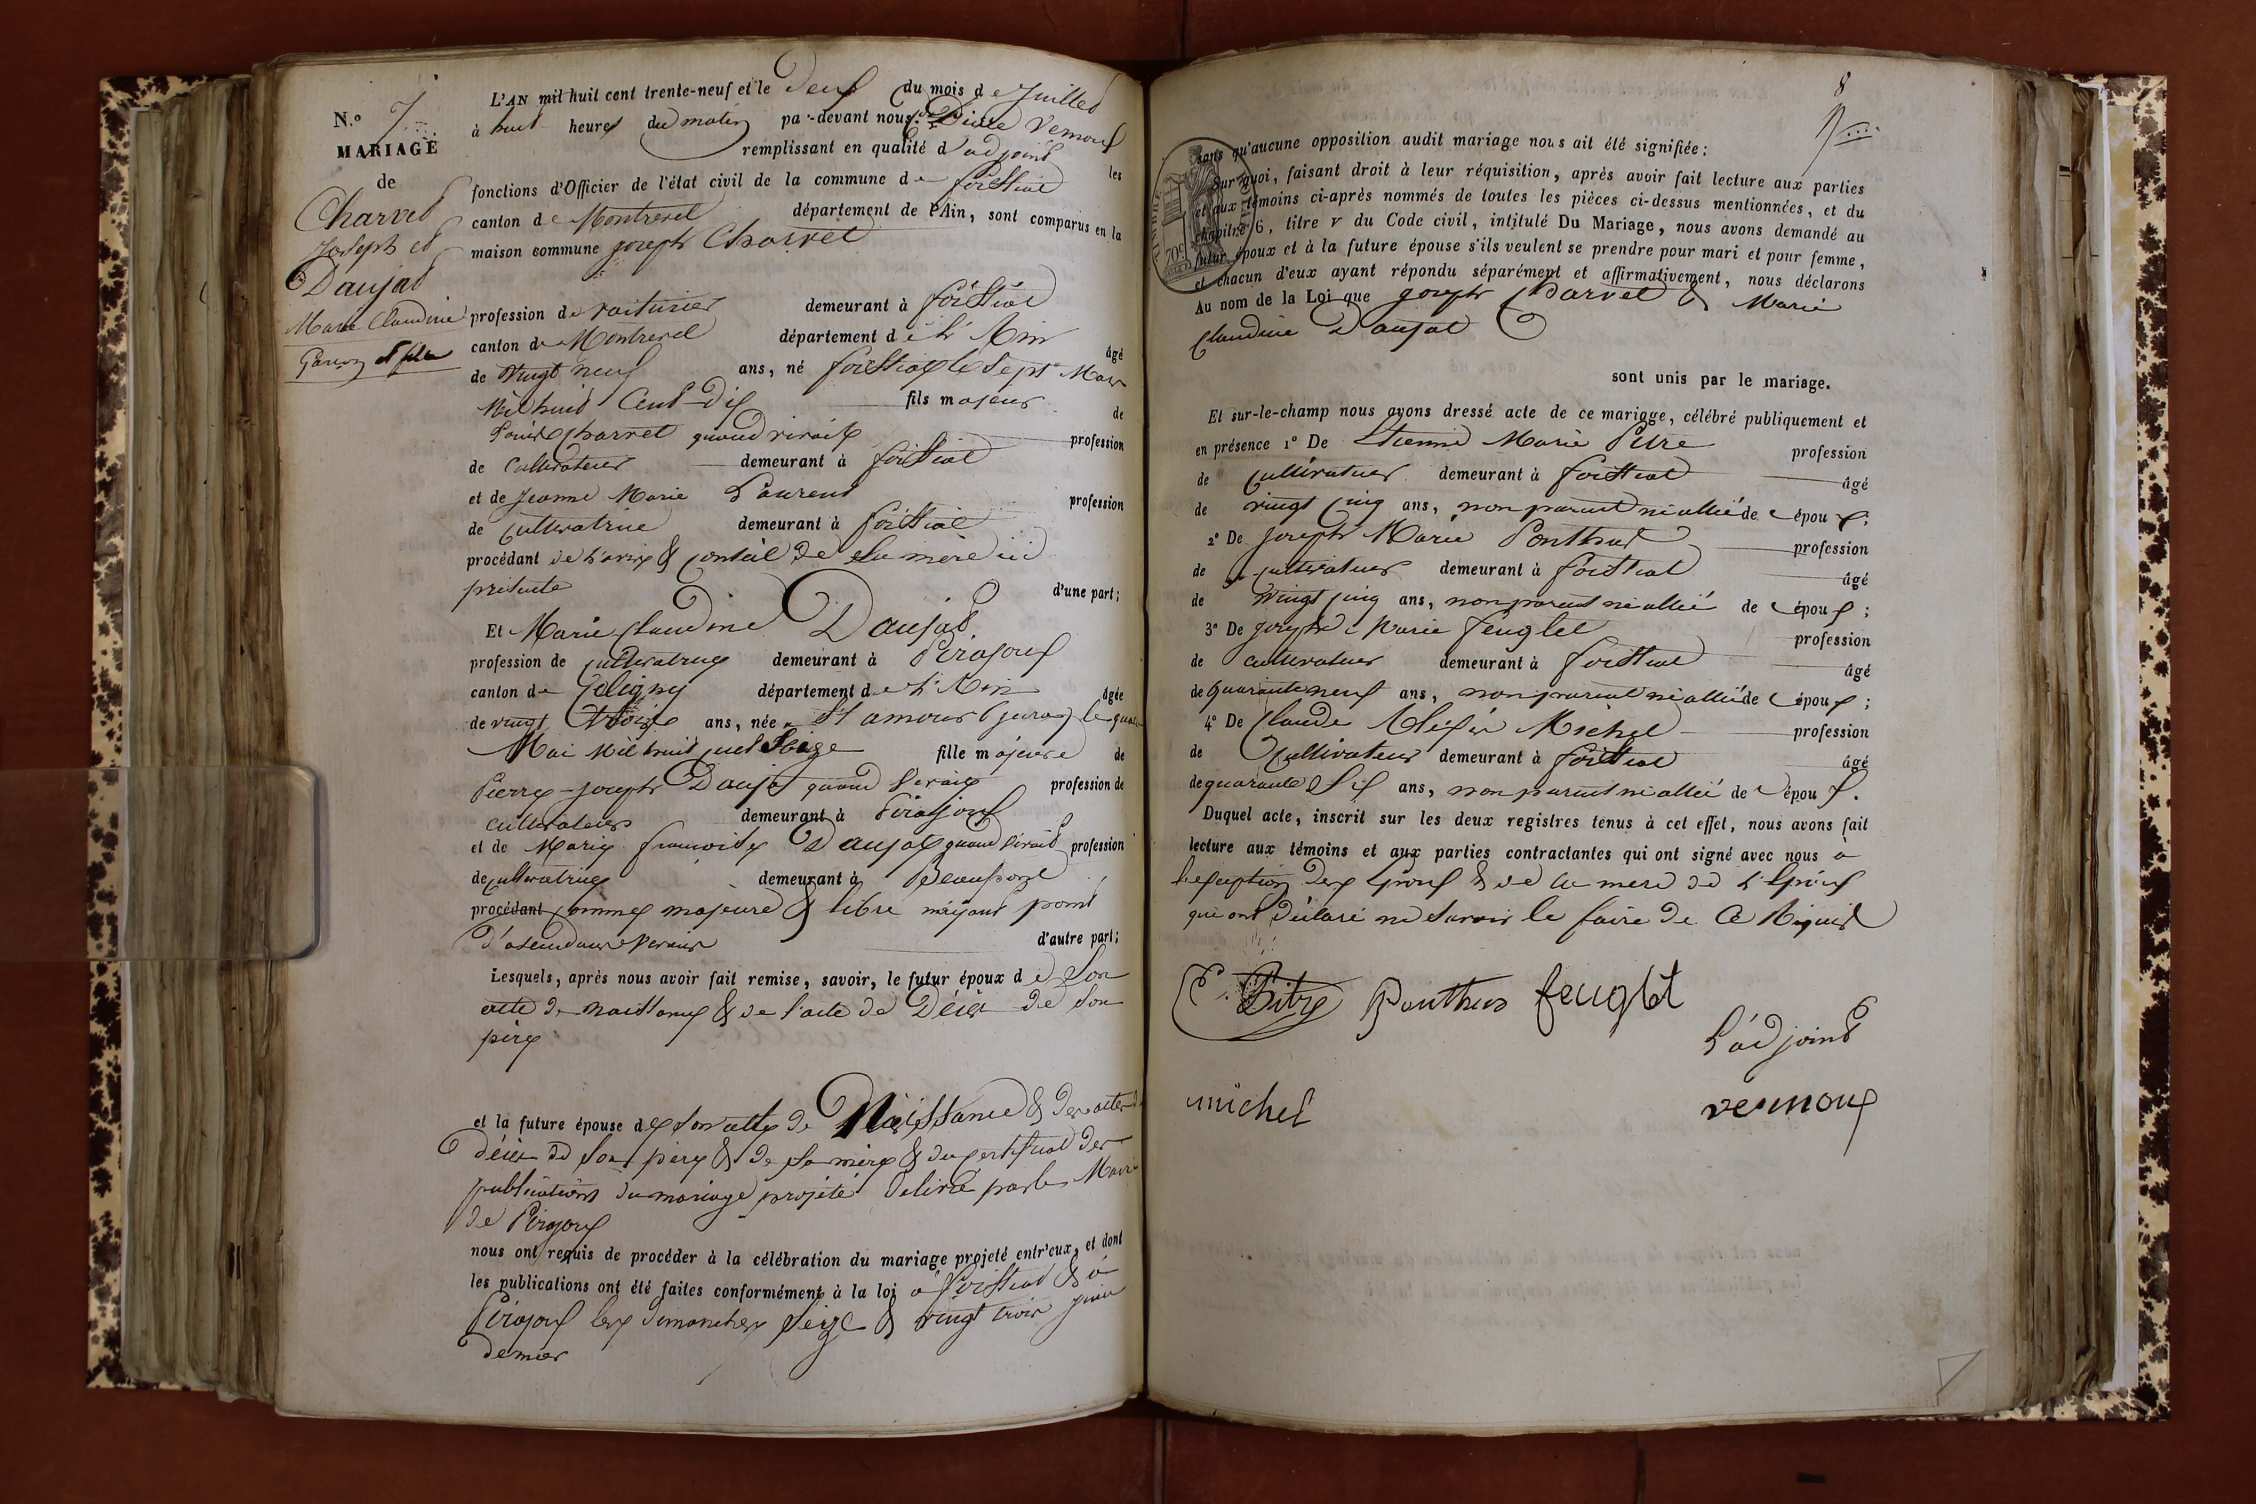 N.º 7
MARIAGE
de
Charvet
Joseph et
Daujat
Marie Claudine
Garçon et fille
L'AN mil huit cent trente-neuf et le deux du mois de Juillet
à huit heures du matin par-devant nous Vernoux
remplissant en qualité d'adjoint les
fonctions d'Officier de l'état civil de la commune de foissiat
canton de Montrevel département de l'Ain, sont comparus en la
maison commune joseph Charvet
profession de voiturier demeurant à foissiat
canton de Montrevel département de l'Ain âgé
de vingt neuf ans, né foissiat le sept Mars
Mil huit Cent Dix fils majeur de
Louis Charvet quand vivait profession
de Cultivateur demeurant à foissiat
et de Jeanne Marie Laurent profession
de cultivatrice demeurant à foissiat
procédant de l'avis & conseil de sa mère ici
présente d'une part;
Et Marie Claudine Daujat
profession de cultivatrice demeurant à Pirajoux
canton de Coligny département de l'Ain âgée
de vingt trois ans, née à St amour (jura) le quatre
Mai Mil huit cent Seize fille majeure de
Pierre-joseph Daujat quand vivait profession de
cultivateur demeurant à Pirajoux
et de Marie françoise Daujat quand vivait profession
de cultivatrice demeurant à Beaupont
procédant comme majeure & libre n'ayant point
d'ascendans vivans d'autre part;
Lesquels, après nous avoir fait remise, savoir, le futur époux de Son
acte de naissance & de l'acte de Décès de son
père
et la future épouse de son acte de Naissance & des actes de
décès de son père & de sa mère & du certificat des
publications du mariage projeté délivré par le Maire
de Pirajoux
nous ont requis de procéder à la célébration du mariage projeté entr'eux, et dont
les publications ont été faites conformément à la loi à foissiat & à
Pirajoux les dimanches seize & vingt trois juin
dernier
8
TIMBRE
70 c
sans qu'aucune opposition audit mariage nous ait été signifiée:
Sur quoi, faisant droit à leur réquisition, après avoir fait lecture aux parties
et aux témoins ci-après nommés de toutes les pièces ci-dessus mentionnées, et du
chapitre 6, titre v du Code civil, intitulé Du Mariage, nous avons demandé au
futur époux et à la future épouse s'ils veulent se prendre pour mari et pour femme,
et chacun d'eux ayant répondu séparément et affirmativement, nous déclarons
Au nom de la Loi que joseph Charvet & Marie
Claudine Daujat
sont unis par le mariage.
Et sur-le-champ nous avons dressé acte de ce mariage, célébré publiquement et
en présence 1º De Etienne Marie Pitre profession
de Cultivateur demeurant à foissiat âgé
de vingt cinq ans, non parent ni allié de époux;
2º De joseph Marie Ponthus profession
de cultivateur demeurant à foissiat âgé
de vingt cinq ans, non parent ni allié de époux;
3º De joseph Marie feuglet profession
de cultivateur demeurant à foissiat âgé
de quarante neuf ans, non parent ni allié de époux;
4º De Claude Michel profession
de Cultivateur demeurant à foissiat âgé
de quarante Six ans, non parent ni allié de époux.
Duquel acte, inscrit sur les deux registres tenus à cet effet, nous avons fait
lecture aux témoins et aux parties contractantes qui ont signé avec nous à
l'exception des époux & de la mère de l'époux
qui ont déclaré ne savoir le faire de Ce Requis
E. Pitre Ponthus feuglet
L'adjoint
michel vernoux